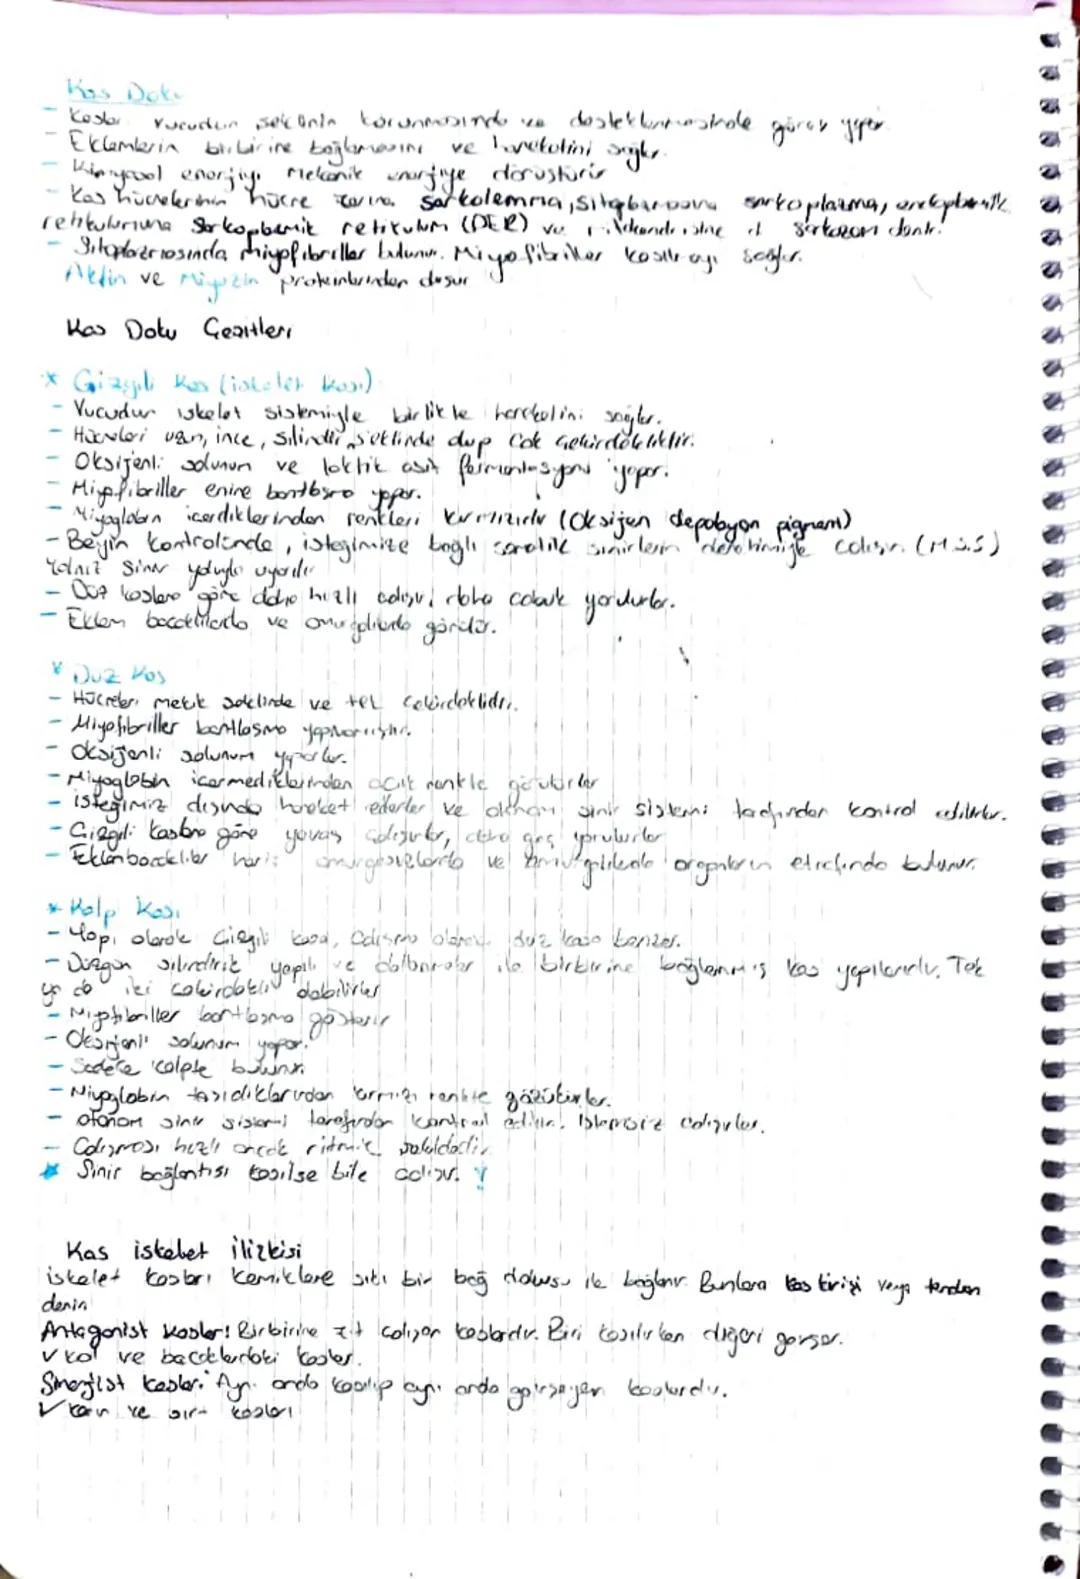 Kas Doku
- Kaslar vücudun şeklinin korunmasında ve desteklenmesinde görev yapar.
- Eklemlerin birbirine bağlanmasını ve hareketini sağlar.
- Kimyasal enerjiyi mekanik enerjiye dönüştürür
- Kas hücrelerinin hücre zarına sarkolemma, sitoplazmasına sarkoplazma, endoplazmik
retikulumuna Sarkoplazmik retikulum (DER) ve mitokondrisine sarkozom denir.
- Sitoplazmasında miyofibriller bulunur. Miyofibriller kasılmayı sağlar.
Aktin ve Miyozin proteinlerinden oluşur
Kas Doku Çeşitleri
* Çizgili Kas (iskelet kası)
- Vucudun iskelet sistemiyle birlikte hareketini sağlar.
- Hücreleri uzun, ince, silindir şeklinde olup çok çekirdeklidir.
- Oksijenli solunum ve laktik asit fermantasyonu yapar.
- Miyofibriller enine bantlaşma yapar.
- Miyoglobin içerdiklerinden renkleri kırmızıdır (Oksijen depolayan pigment)
- Beyin kontrolünde, isteğimize bağlı somatik sinirlerin denetimiyle çalışır. (M.S.S)
Yalnız sinir yoluyla uyarılır
- Düz kaslara göre daha hızlı çalışır, daha çabuk yorulurlar.
- Eklem bacaklılarda ve omurgalılarda görülür.
* Düz Kas
- Hücreleri mekik şeklinde ve tek çekirdeklidir.
- Miyofibriller bantlaşma yapmamıştır.
- Oksijenli solunum yaparlar.
- Miyoglobin içermediklerinden açık renkle görülürler
- isteğimiz dışında hareket ederler ve otonom sinir sistemi tarafından kontrol edilirler.
- Çizgili kaslara göre yavaş çalışırlar, daha geç yorulurlar
- Eklembacaklılar hariç omurgasızlarda ve omurgalılarda organların etrafında bulunur.
* Kalp Kası
- Yapı olarak Çizgili kasa, Çalışma olarak düz kasa benzer.
- Düzgün silindirik yapılı ve dallanmalar ile birbirine bağlanmış kas yapılarıdır. Tek
ya da iki çekirdekli olabilirler
- Miyofibriller bantlaşma gösterir
- Oksijenli solunum yapar.
- Sadece kalpte bulunur.
- Miyoglobin taşıdıklarından kırmızı renkte gözükürler.
- otonom sinir sistemi tarafından kontrol edilir. istemsiz çalışırlar.
- Çalışması hızlı ancak ritmik şekildedir.
* Sinir bağlantısı kesilse bile çalışır. !
Kas iskelet ilişkisi
iskelet kasları kemiklere sıkı bir bağ dokusu ile bağlanır. Bunlara kas kirişi veya tendon
denir
Antagonist kaslar: Birbirine zıt çalışan kaslardır. Biri kasılırken diğeri gevşer.
✓ kol ve bacaklardaki kaslar.
Sinerjist kaslar: Aynı anda kasılıp aynı anda gevşeyen kaslardır.
✓ Karın ve sırt kasları